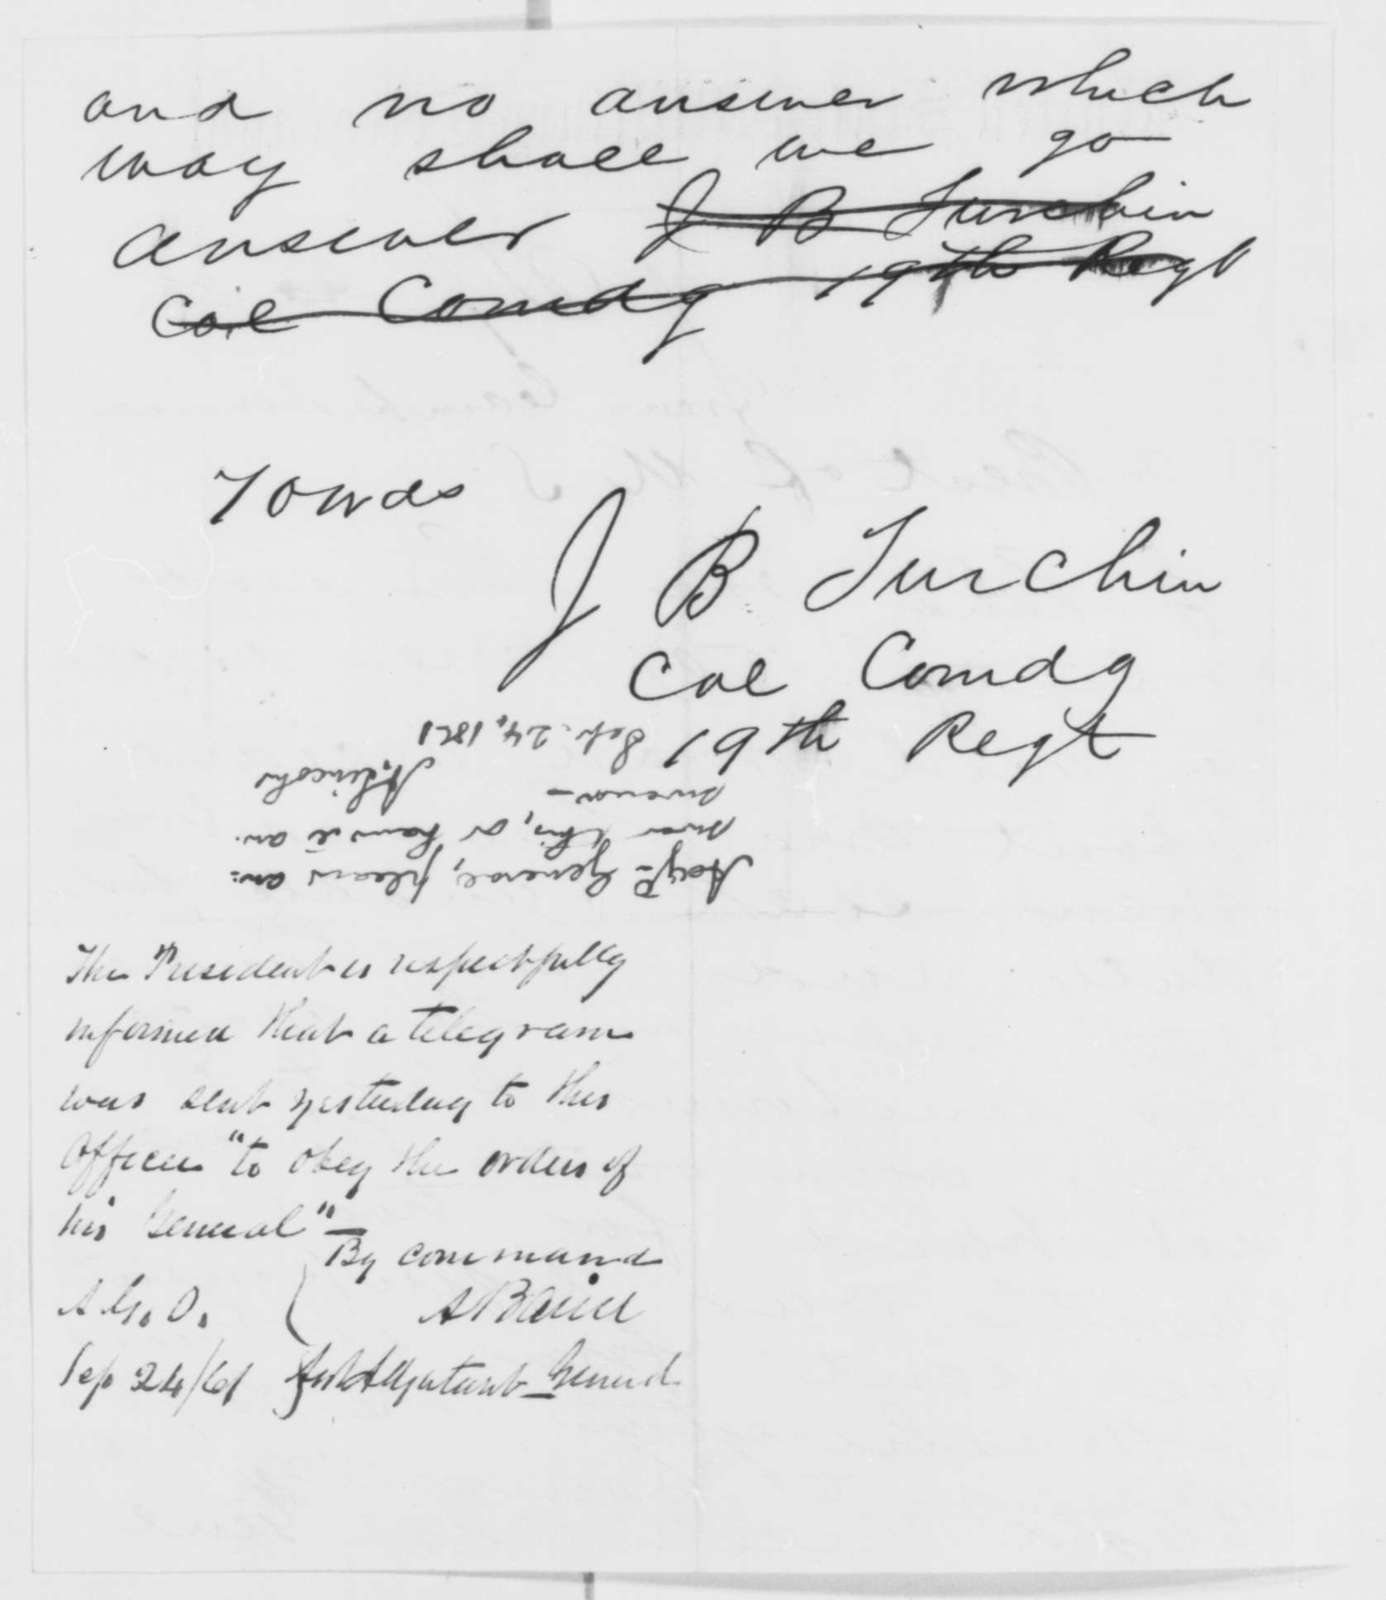 and no answer which
way shall we go
answer J B Turchin
Col Comdg 19th Regt
Yours
J B Turchin
Col Comdg
19th Regt
Adjt. General, please an-
swer this, or have it an-
swered.
A. Lincoln
Sep. 24, 1861
The President is respectfully
informed that a telegram
was sent yesterday to this
Officer "to obey the orders of
his General"—
By command
A. G. O.
Sep 24/61 Asst Adjutant General